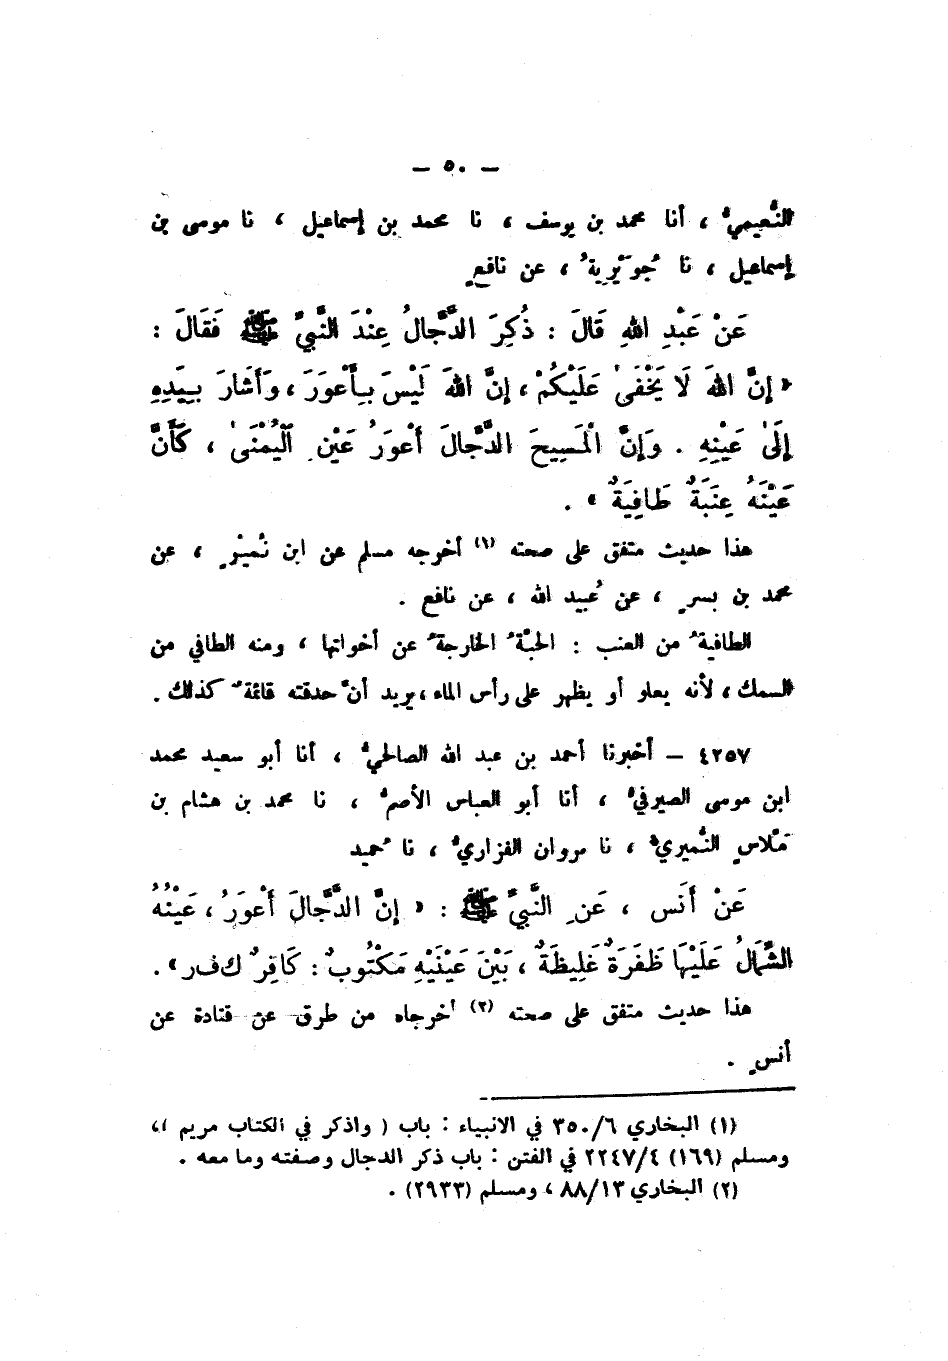 — ٥٠ —
النُّعيميُّ ، أنا محمد بن يوسف ، نا محمد بن إسماعيل ، نا موسى بن
إسماعيل ، نا جُوَيْرِيةُ ، عن نافعٍ
عَنْ عَبْدِ اللهِ قَالَ : ذُكِرَ الدَّجَّالُ عِنْدَ النَّبِيِّ ﷺ فَقَالَ :
« إِنَّ اللهَ لَا يَخْفَىٰ عَلَيْكُمْ ، إِنَّ اللهَ لَيْسَ بِأَعْوَرَ ، وَأَشَارَ بِيَدِهِ
إِلَىٰ عَيْنِهِ . وَإِنَّ الْمَسِيحَ الدَّجَّالَ أَعْوَرُ عَيْنِ ٱلْيُمْنَىٰ ، كَأَنَّ
عَيْنَهُ عِنَبَةٌ طَافِيَةٌ » .
هذا حديث متفق على صحته (١) أخرجه مسلم عن ابن نُميْرٍ ، عن
محمد بن بسرٍ ، عن عُبيد الله ، عن نافع .
الطافيةُ من العنب : الحبّةُ الخارجةُ عن أخواتها ، ومنه الطافي من
السمك ، لأنه يعلو أو يظهر على رأس الماء ، يريد أنّ حدقته قائمةٌ كذلك .
٤٢٥٧ — أخبرنا أحمد بن عبد الله الصالحيُّ ، أنا أبو سعيد محمد
ابن موسى الصيرفيُّ ، أنا أبو العباس الأصمُّ ، نا محمد بن هشام بن
مَلّاسٍ النُّميريُّ ، نا مروان الفزاريُّ ، نا حُميد
عَنْ أَنَسٍ ، عَنِ النَّبِيِّ ﷺ : « إِنَّ الدَّجَّالَ أَعْوَرُ ، عَيْنُهُ
الشِّمَالُ عَلَيْهَا ظَفَرَةٌ غَلِيظَةٌ ، بَيْنَ عَيْنَيْهِ مَكْتُوبٌ : كَافِرٌ ك ف ر » .
هذا حديث متفق على صحته (٢) أخرجاه من طرق عن قتادة عن
أنسٍ .
(١) البخاري ٣٥٠/٦ في الانبياء : باب ( واذكر في الكتاب مريم ) ،
ومسلم (١٦٩) ٢٢٤٧/٤ في الفتن : باب ذكر الدجال وصفته وما معه .
(٢) البخاري ٨٨/١٣ ، ومسلم (٢٩٣٣) .